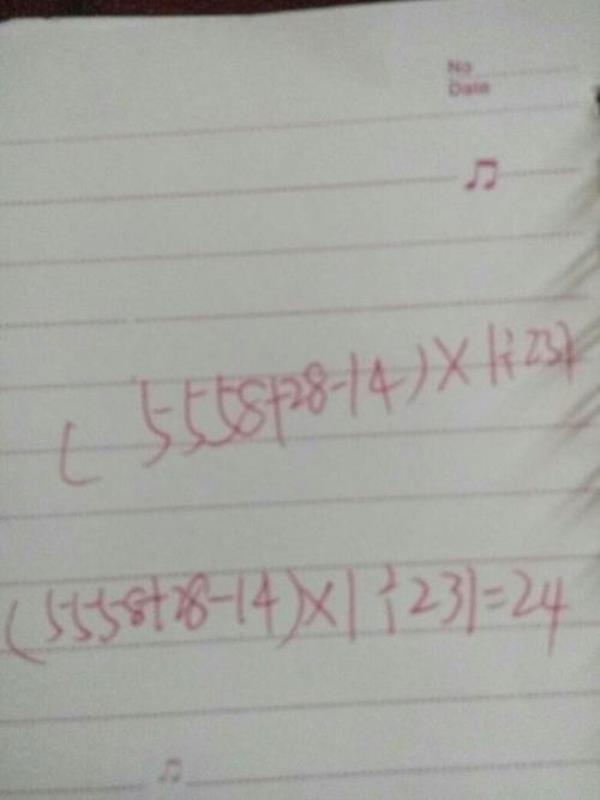 No
Date
(5558+28-14)×1÷231
(5558+28-14)×1÷231=24